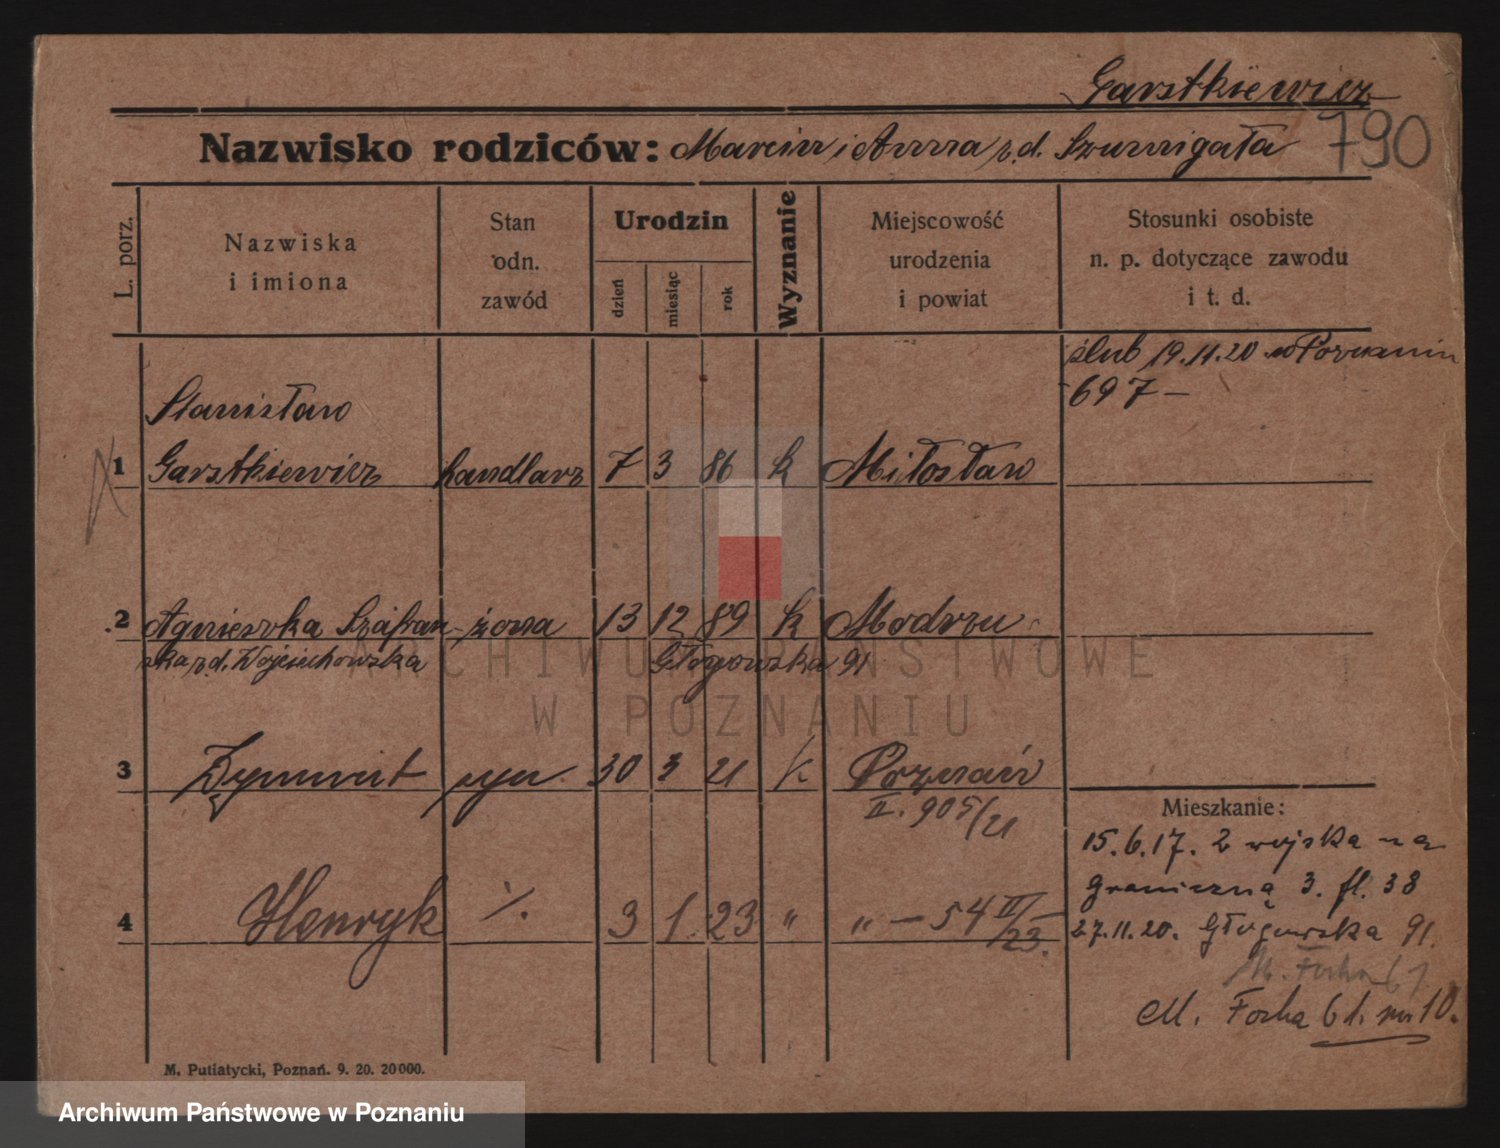 Garstkiewicz
Nazwisko rodziców: Marcin i Anna z.d. Szurnigała
790
L. porz.
Nazwiska
i imiona
Stan
odn.
zawód
Urodzin
dzień
miesiąc
rok
Wyznanie
Miejscowość
urodzenia
i powiat
Stosunki osobiste
n. p. dotyczące zawodu
i t. d.
ślub 19.11.20 w Poznaniu
697 —
Stanisław
1 Garstkiewicz handlarz 7 3 86 k Miłosław
2 Agnieszka Szafrań- żona 13 12 89 k Modrzu
ska z.d. Wojciechowska Głogowska 91
3 Zygmunt syn 30 3 21 k Poznań
II. 905/21
4 Henryk ·/. 3 1 23 " " — 54 II/23.
Mieszkanie:
15.6.17. z wojska na
Graniczną 3. fl. 38
27.11.20. Głogowska 91.
M. Focha 61
M. Focha 61. m 10.
M. Putiatycki, Poznań. 9. 20. 20000.
ARCHIWUM PAŃSTWOWE
W POZNANIU
Archiwum Państwowe w Poznaniu